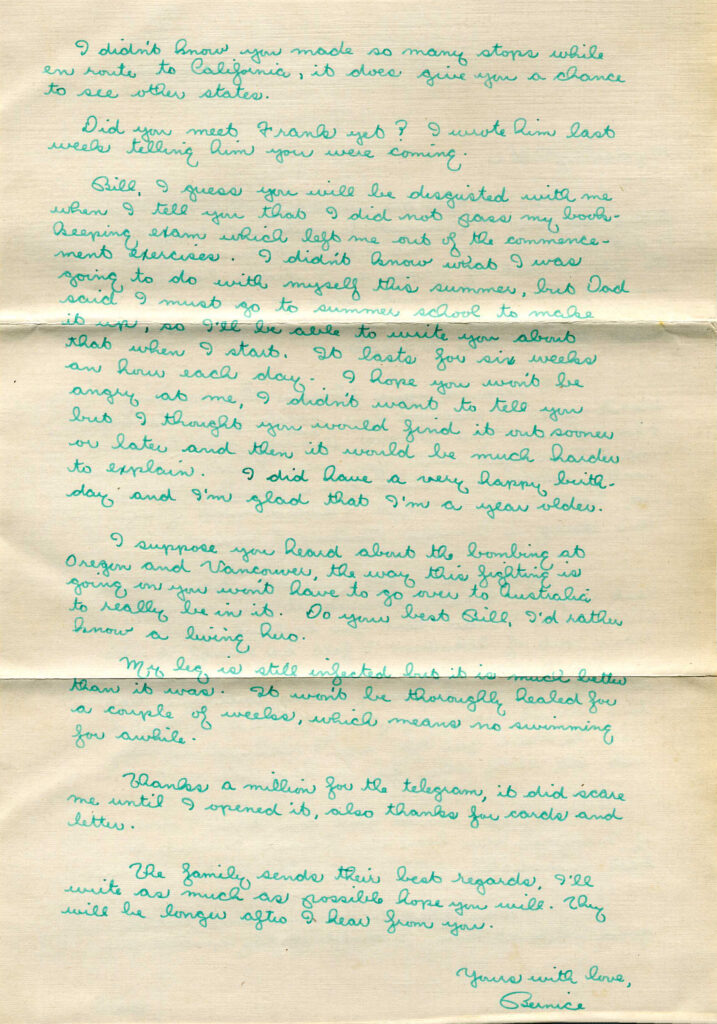 I didn't know you made so many stops while
en route to California, it does give you a chance
to see other states.
Did you meet Frank yet? I wrote him last
week telling him you were coming.
Bill, I guess you will be disgusted with me
when I tell you that I did not pass my book-
keeping exam which left me out of the commence-
ment exercises. I didn't know what I was
going to do with myself this summer, but Dad
said I must go to summer school to make
it up, so I'll be able to write you about
that when I start. It lasts for six weeks
an hour each day. I hope you won't be
angry at me, I didn't want to tell you
but I thought you would find it out sooner
or later and then it would be much harder
to explain. I did have a very happy birth-
day and I'm glad that I'm a year older.
I suppose you heard about the bombing at
Oregon and Vancouver, the way this fighting is
going on you won't have to go over to Australia
to really be in it. Do your best Bill, I'd rather
know a living hero.
My leg is still infected but it is much better
than it was. It won't be thoroughly healed for
a couple of weeks, which means no swimming
for awhile.
Thanks a million for the telegram, it did scare
me until I opened it, also thanks for cards and
letter.
The family sends their best regards, I'll
write as much as possible hope you will. They
will be longer after I hear from you.
Yours with love,
Bernice